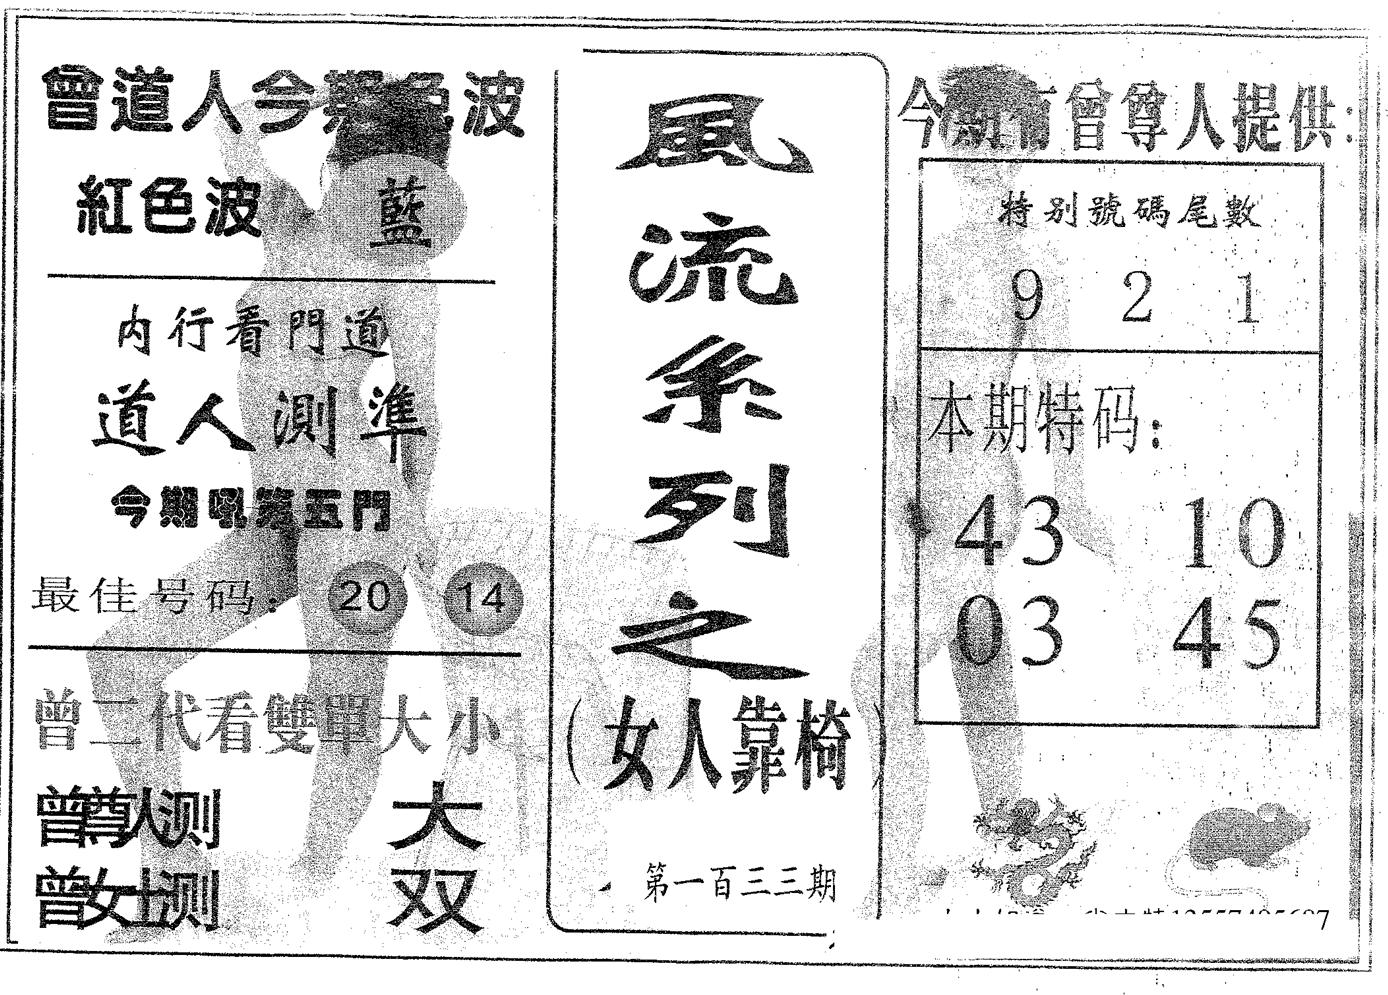 曾道人今期色波
紅色波 藍
內行看門道
道人測準
今期吼第五門
最佳号码: 20 14
曾二代看雙單大小
曾尊人测 大
曾女士测 双
風流系列之
(女人靠椅)
第一百三三期
今期有曾尊人提供:
特别號碼尾數
9 2 1
本期特码:
43 10
03 45